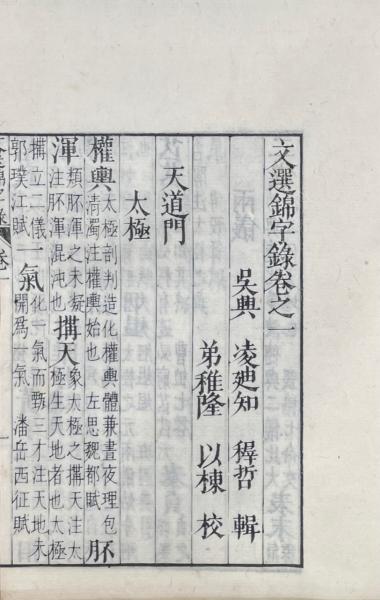 文選錦字錄卷之一
吳興 凌廸知 穉哲 輯
弟稚隆 以棟 校
天道門
太極
權輿 太極剖判造化權輿體兼晝夜理包
清濁注權輿始也 左思魏都賦 胚
渾 類胚渾之未凝 象太極之搆天注太
注胚渾混沌也 搆天 極生天地者也太極
搆立二儀一 氣 化一氣而甄三才注天地未
郭璞江賦 開爲一氣 潘岳西征賦